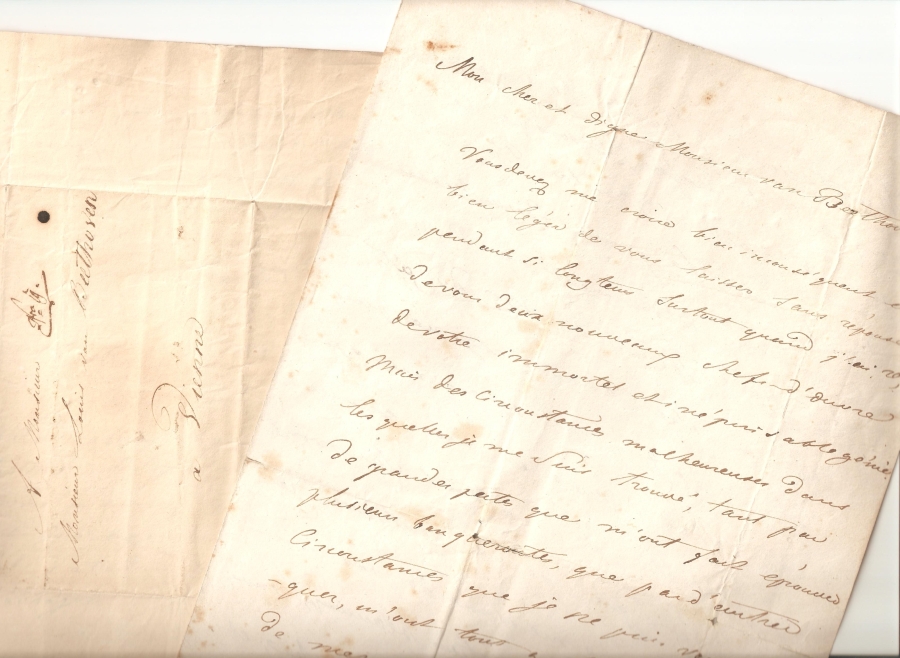 Mon cher et digne Monsieur van Beetho
Vous devez me croire bien inconséquent
bien léger de vous laisser sans réponse
pendant si longtems surtout quand j'ai
de vous deux nouveaux chefs-d'œuvre
de votre immortel et inépuisable génie
Mais des circonstances malheureuses dans
les quelles je me suis trouvé, tant par
de grandes pertes que m'ont fait éprouver
plusieurs banqueroutes, que par d'autres
circonstances que je ne puis
-quer, m'ont tout
de mes
A Monsieur
Monsieur Louis van Beethoven
a Vienne